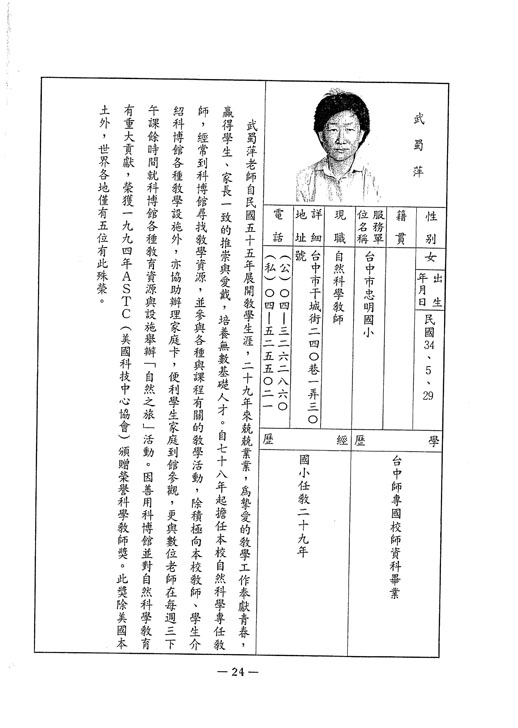 武蜀萍
性別
女
出生年月日
民國34、5、29
籍貫
服務單位名稱
台中市忠明國小
現職
自然科學教師
詳細地址
台中市干城街二四〇巷一弄三〇號
電話
（公）〇四—三二六二八六〇
（私）〇四—五二五五〇二一
學歷
台中師專國校師資科畢業
經歷
國小任教二十九年
武蜀萍老師自民國五十五年展開教學生涯，二十九年來兢兢業業，為摯愛的教學工作奉獻青春，
贏得學生、家長一致的推崇與愛戴，培養無數基礎人才。自七十八年起擔任本校自然科學專任教
師，經常到科博館尋找教學資源，並參與各種與課程有關的教學活動，除積極向本校教師、學生介
紹科博館各種教學設施外，亦協助辦理家庭卡，便利學生家庭到館參觀，更與數位老師在每週三下
午課餘時間就科博館各種教育資源與設施舉辦「自然之旅」活動。因善用科博館並對自然科學教育
有重大貢獻，榮獲一九九四年ASTC（美國科技中心協會）頒贈榮譽科學教師獎。此獎除美國本
土外，世界各地僅有五位有此殊榮。
— 24 —